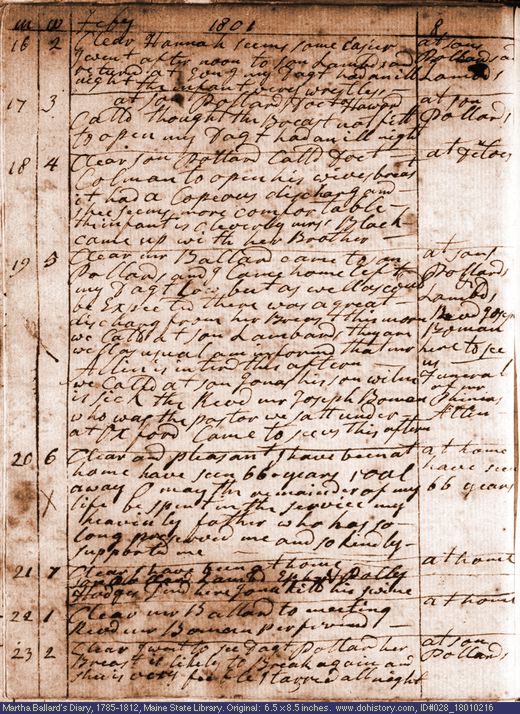 m w Feby 1801 8
16 2 Clear Hannah seems some Easier at sons
I went after noon to son Lambards and Pollards and
returnd at Evng my Dagt had an ill Lambds
night the infant very wrestless
17 3 at son Pollards Doct Howard at son
Calld thought the Breast not fitt Pollards
to open my Dagt had an ill night
18 4 Clear son Pollard Calld Doct at Ditoes
Colman to open his wives breast
it had a Copeous discharg and
shee seems more comfortable
the infant is cleverly mrs Black
came up with her Broother
19 5 Clear mr Ballard came to son at sons
Pollards and I came home left Pollards
my Dagt but as well as could & Lambds
be Expected there was a great Revd Joseph
discharg from her Breast this morn Boman
we Calld at son Lambards they are here to see
well as usual am informd that mr us
Allin is intird this aftern Funeral
we calld at son Jonas his son Wilm of mr
is sick the Revd mr Joseph Boman Phinias
who was the pastor we satt under Allin
at Oxford Came to see us this aftern
20 6 Clear and pleasant I have been at at home
home have seen 66 years rool have seen
away O may the remainder of my 66 years
life be spent in the service my
heavenly father who has so
long preserved me and so kindly
supported me
21 7 Clear I have been at home at home
son Lambard Polly
Hodges Dind here Jona killd his swine
22 1 Clear mr Ballard to meeting at home
Revd mr Boman performd
23 2 Clear I went to see Dagt Pollard her at son
Breast is likely to Break again and Pollards
shee is very feeble I tarried all night
Martha Ballard's Diary, 1785-1812, Maine State Library. Original: 6.5 x 8.5 inches. www.dohistory.com, ID#028_18010216